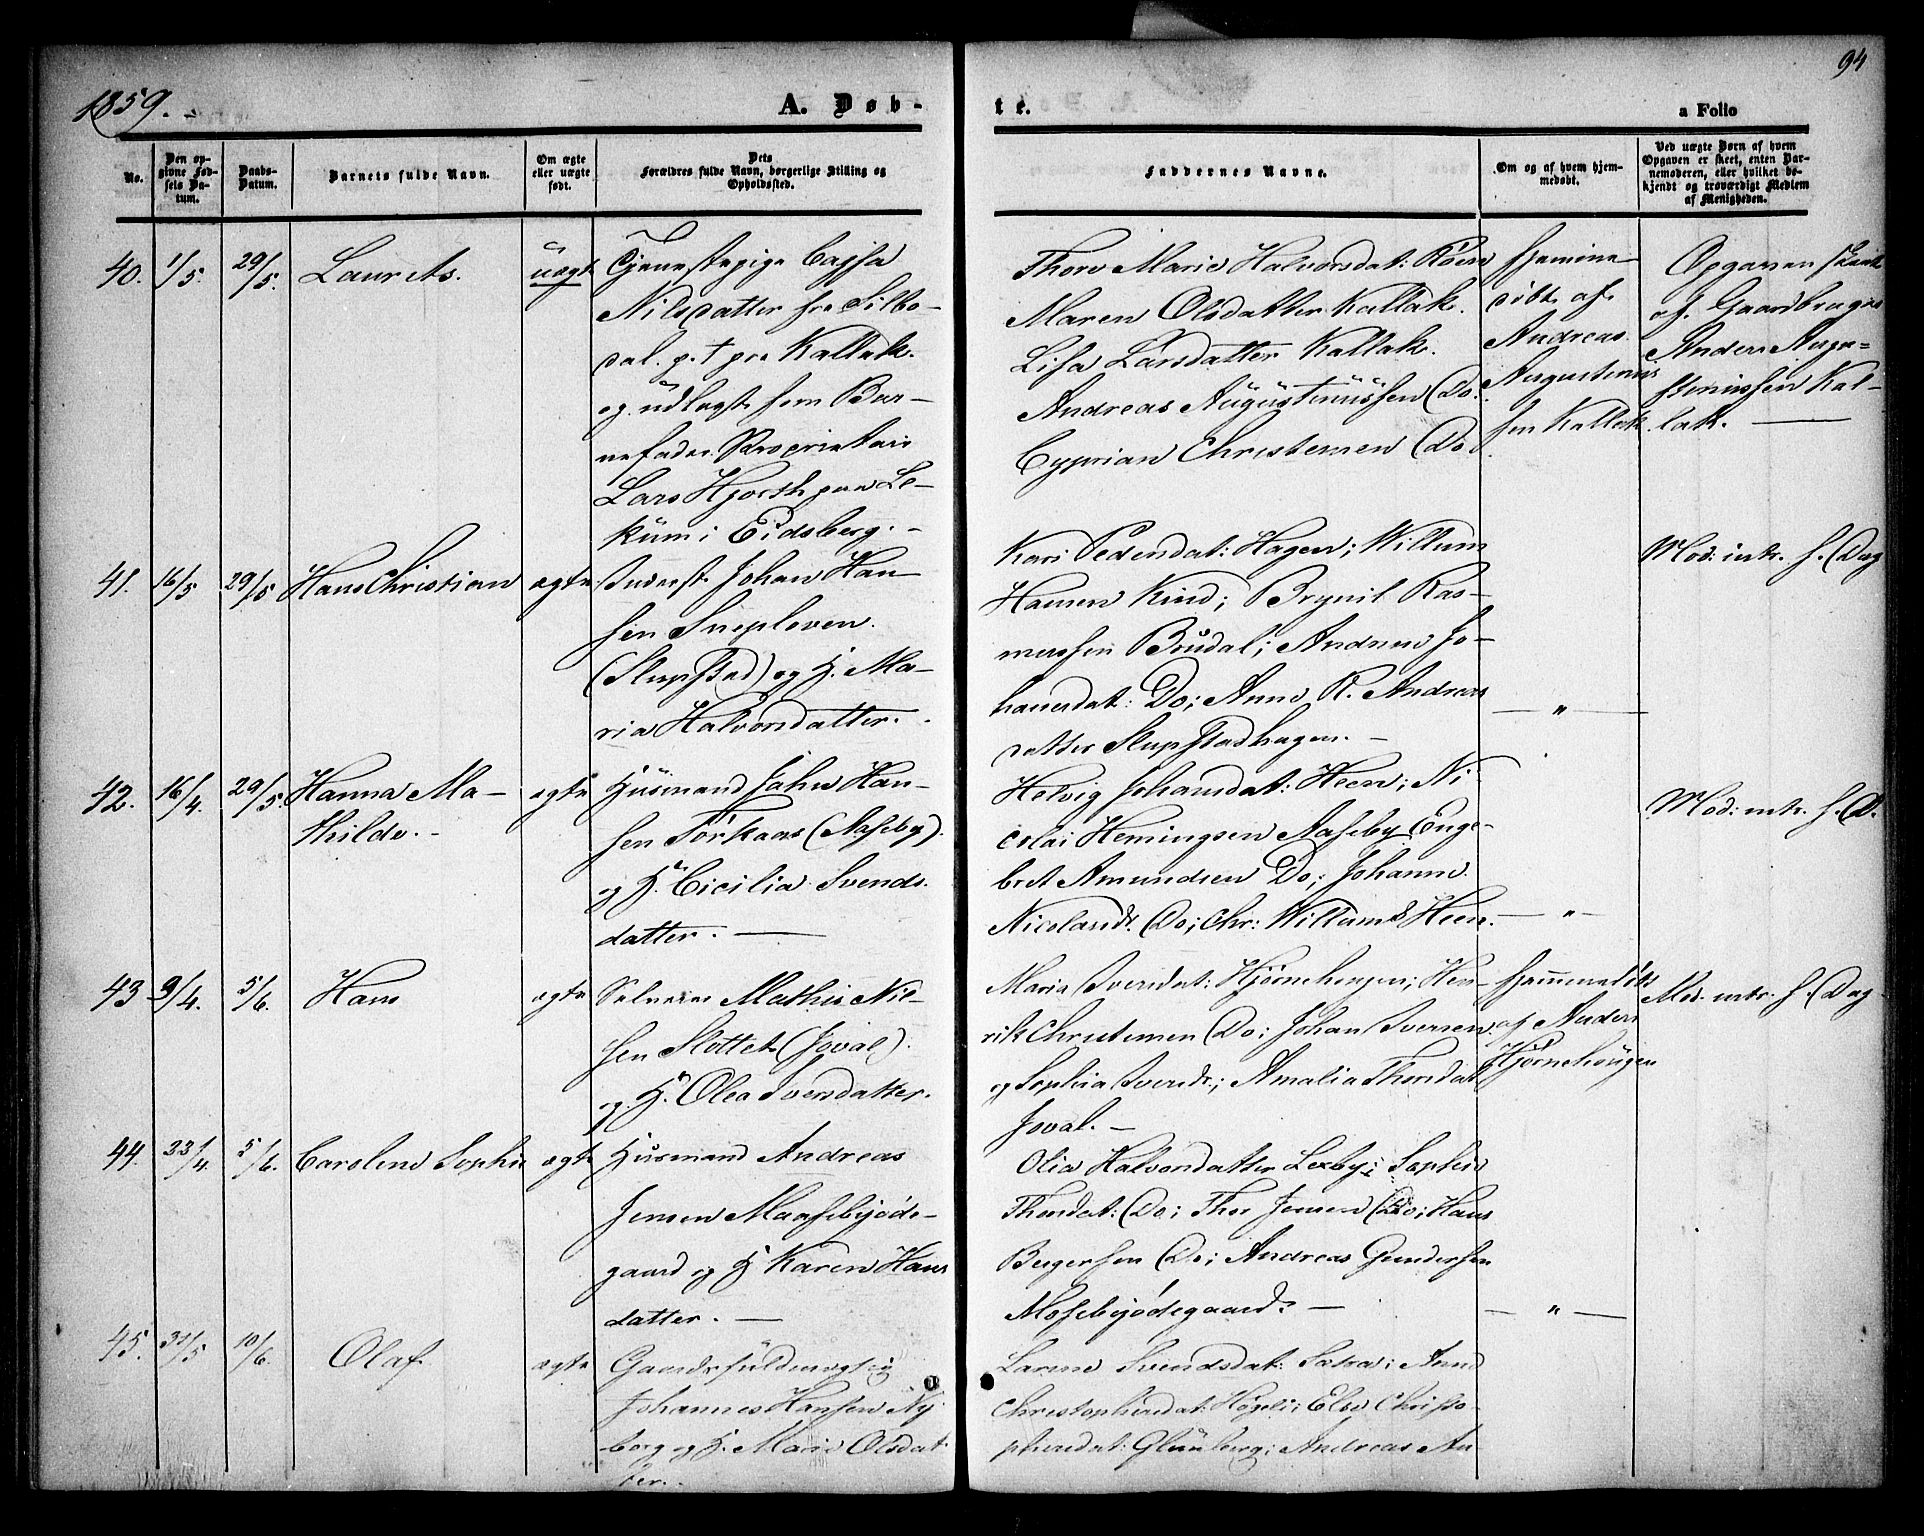 94
1859.
A. Døb-
te.
a Folio
No.
Den op-
givne Fød-
sels Da-
tum.
Daabs-
Datum.
Barnets fulde Navn.
Om ægte
eller uægte
født.
Dets
Forældres fulde Navn, borgerlige Stilling og
Opholdssted.
Faddernes Navne.
Om og af hvem hjem-
medøbt.
Ved uægte Børn af hvem
Opgaven er skeet, enten Bar-
nemoderen, eller hvilket be-
kjendt og troværdigt Medlem
af Menigheden.
40.
1/5.
29/5.
Laurets.
uægte
Tjenestepige Cajsa
Nilsdatter fra Silbo-
dal. p. t. paa Kallak.
og udlagt som Bar-
nefader Proprietair
Lars Hjorth paa Le-
kum i Eidsberg. -
Thore Marie Halvorsdat:
Maren Olsdatter Kallak.
Lisa Larsdatter Kallak.
Andreas Augustinussen Do.
Cyprian Christensen Do.
hjemme-
døbt af
Andreas
Augustinus
sen Kallak.
Opgaven skeet
af Gaardbruger
Anders Augu-
stinussen Kal-
lak.
41.
16/5
29/5
Hans Christian
ægte
Inderst Johan Han-
sen Sneploven
(Slupstad) og H. Ma-
ria Halvorsdatter.
Kari Pedersdat: Hagen; Willum
Hansen Kind; Brynil Ras-
mussen Brudal; Andrea Jo-
hansdat: Do; Anne R. Andreas
datter Slupstadhagen. -
- " -
Mod: intr. s. Dag
42.
16/4.
29/5.
Hanna Ma-
thilde. -
ægte
Husmand John Han-
sen Törkaas (Aaseby).
og H. Cicilia Svends-
datter.
Helvig Johansdat: Heen; Ni-
colai Hemingsen Aaseby; Enge-
bret Amundsen Do; Johanne
Nicolaisdr. Do; Chr: Willums. Heen.
- " -
Mod: intr. s. D.
43
9/4.
5/6.
Hans
ægte
Selveier Mathis Nil-
sen Slottet (Joval).
og H. Olea Iversdatter.
Maria Iversdat: Hjørnehougen; Hen-
rik Christensen Do; Johan Iversen
og Sophia Iversdr.; Amalia Thorsdat
Joval. -
hjemmedöbt
af Anders
Hjørnehougen
Mod. intr. s. Dag
44.
23/4.
5/6.
Caroline Sophie
ægte
Husmand Andreas
Jensen Maasebyøde-
gaard og H Karen Hans
datter. -
Olia Halvorsdatter Lexby; Sophie
Thorsdat: Do; Thor Jensen Do; Hans
Bergersen Do; Andreas Gundersen
Mosebyødegaard. -
- " -
45.
31/5
10/6.
Olaf
ægte
Gaardsfuldmægtig
Johannes Hansen Ny-
borg og H. Marie Olsdat-
ter.
Larine Svendsdat: ; Anne
Christophersdat: Høgeli; Else Christo-
phersdat: ; Andreas An-